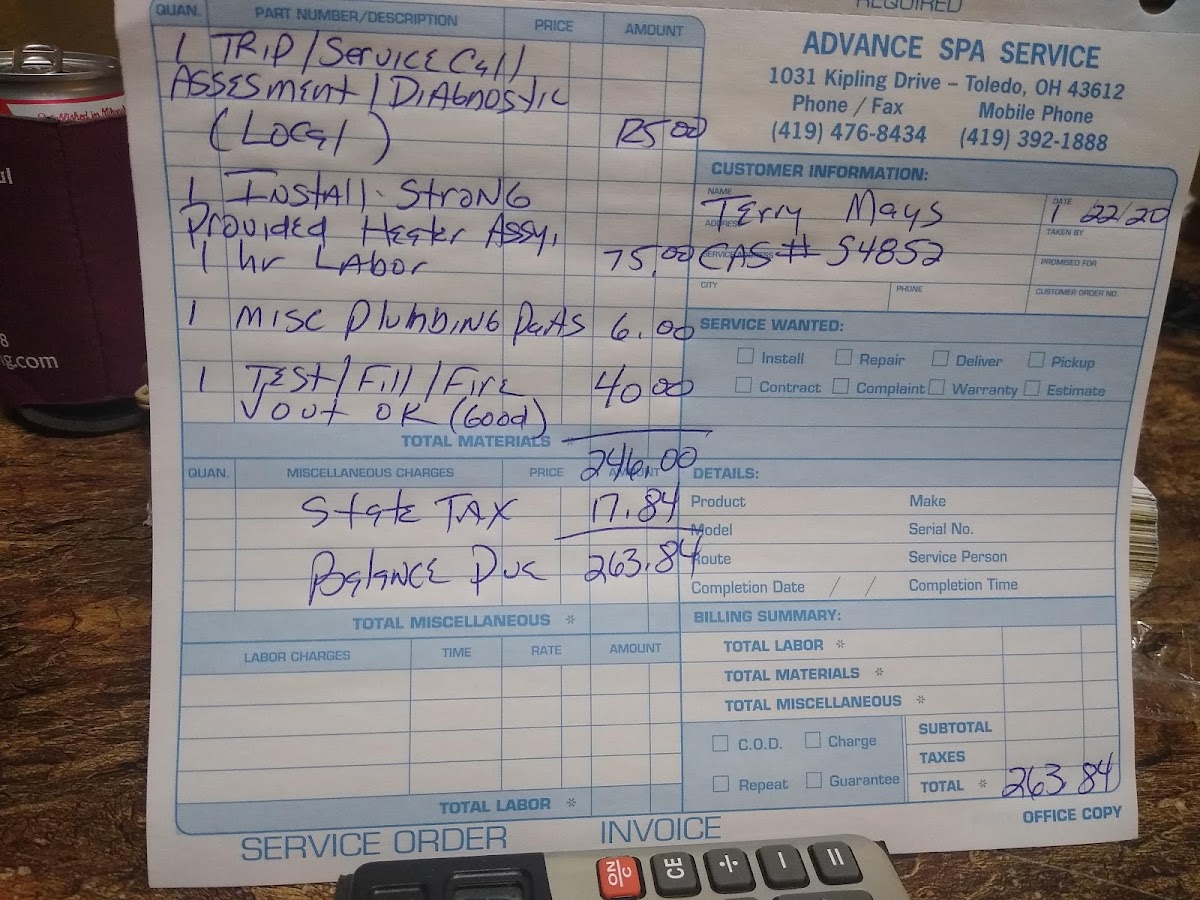 REQUIRED
QUAN. PART NUMBER/DESCRIPTION PRICE AMOUNT
1 TRIP/Service Call
ASSESMENT/DIAGNOSTIC
(Local) 125 00
1 Install Strong
Provided Heater Assy,
1 hr Labor 75.00
1 MISC Plumbing Parts 6.00
1 TEST/Fill/Fire 40 00
√ out OK (Good)
TOTAL MATERIALS *
246.00
QUAN. MISCELLANEOUS CHARGES PRICE AMOUNT
State TAX 17.84
Balance Due 263.84
TOTAL MISCELLANEOUS *
LABOR CHARGES TIME RATE AMOUNT
TOTAL LABOR *
SERVICE ORDER INVOICE
ADVANCE SPA SERVICE
1031 Kipling Drive – Toledo, OH 43612
Phone / Fax Mobile Phone
(419) 476-8434 (419) 392-1888
CUSTOMER INFORMATION:
NAME Terry Mays DATE 1 22/20
ADDRESS TAKEN BY
SERVICE ADDRESS CAS # 54852 PROMISED FOR
CITY PHONE CUSTOMER ORDER NO.
SERVICE WANTED:
Install Repair Deliver Pickup
Contract Complaint Warranty Estimate
DETAILS:
Product Make
Model Serial No.
Route Service Person
Completion Date / / Completion Time
BILLING SUMMARY:
TOTAL LABOR *
TOTAL MATERIALS *
TOTAL MISCELLANEOUS *
C.O.D. Charge
Repeat Guarantee
SUBTOTAL
TAXES
TOTAL * 263.84
OFFICE COPY
ON/C CE ÷ – =
8
g.com